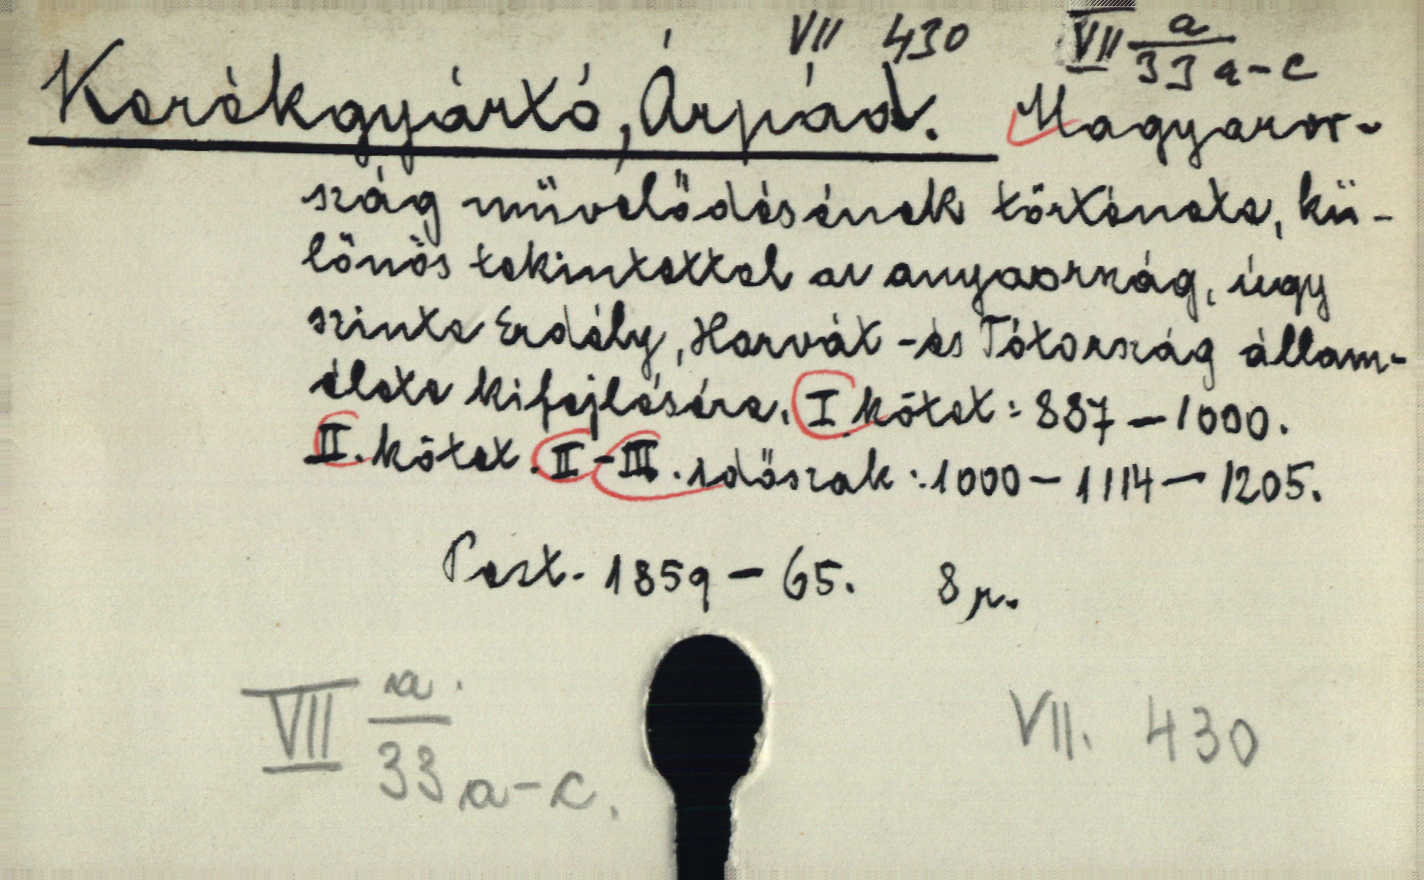 VII 430 VII a/33 a-c
Kerékgyártó, Árpád. Magyaror-
szág művelődésének története, kü-
lönös tekintettel az anyaország, úgy
szinte Erdély, Horvát -és Tótország állam-
élete kifejlésére. I. kötet: 887-1000.
II. kötet. II-III. időszak: 1000-1114-1205.
Pest. 1859-65. 8 r.
VII a/33 a-c. VII. 430